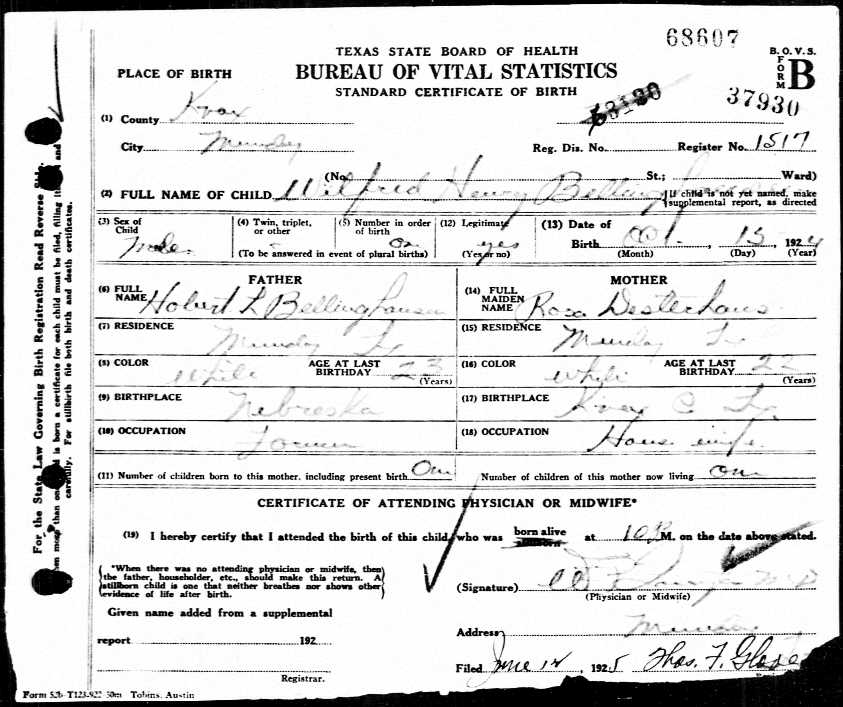 68607
TEXAS STATE BOARD OF HEALTH
B. O. V. S.
FORM B
PLACE OF BIRTH
BUREAU OF VITAL STATISTICS
STANDARD CERTIFICATE OF BIRTH
37930
(1) County Knox
City Munday Reg. Dis. No. Register No. 1517
(No. St.; Ward)
(2) FULL NAME OF CHILD Wilfred Henry Bellinghausen
If child is not yet named, make supplemental report, as directed
(3) Sex of Child Male
(4) Twin, triplet, or other
(5) Number in order of birth
(To be answered in event of plural births)
(12) Legitimate yes (Yes or no)
(13) Date of Birth Oct. 13, 1924
(Month) (Day) (Year)
FATHER
(6) FULL NAME Hobert L Bellinghausen
(7) RESIDENCE Munday Tx
(8) COLOR White AGE AT LAST BIRTHDAY 23 (Years)
(9) BIRTHPLACE Nebraska
(10) OCCUPATION Farmer
MOTHER
(14) FULL MAIDEN NAME Rosa Westerhaus
(15) RESIDENCE Munday Tx
(16) COLOR White AGE AT LAST BIRTHDAY 22 (Years)
(17) BIRTHPLACE Knox C Tx
(18) OCCUPATION House wife
(11) Number of children born to this mother, including present birth One Number of children of this mother now living one
CERTIFICATE OF ATTENDING PHYSICIAN OR MIDWIFE*
(19) I hereby certify that I attended the birth of this child, who was born alive at 10 P M. on the date above stated.
*When there was no attending physician or midwife, then
the father, householder, etc., should make this return. A
stillborn child is one that neither breathes nor shows other
evidence of life after birth.
(Signature) M D
(Physician or Midwife)
Given name added from a supplemental
report 192
Registrar.
Address Munday
Filed June 12, 1925 Thos. F.
Form 52b-T123-922-50m Tobins, Austin
For the State Law Governing Birth Registration Read Reverse Side.
than one is born a certificate for each child must be filed, filling
carefully. For stillbirth file both birth and death certificates.